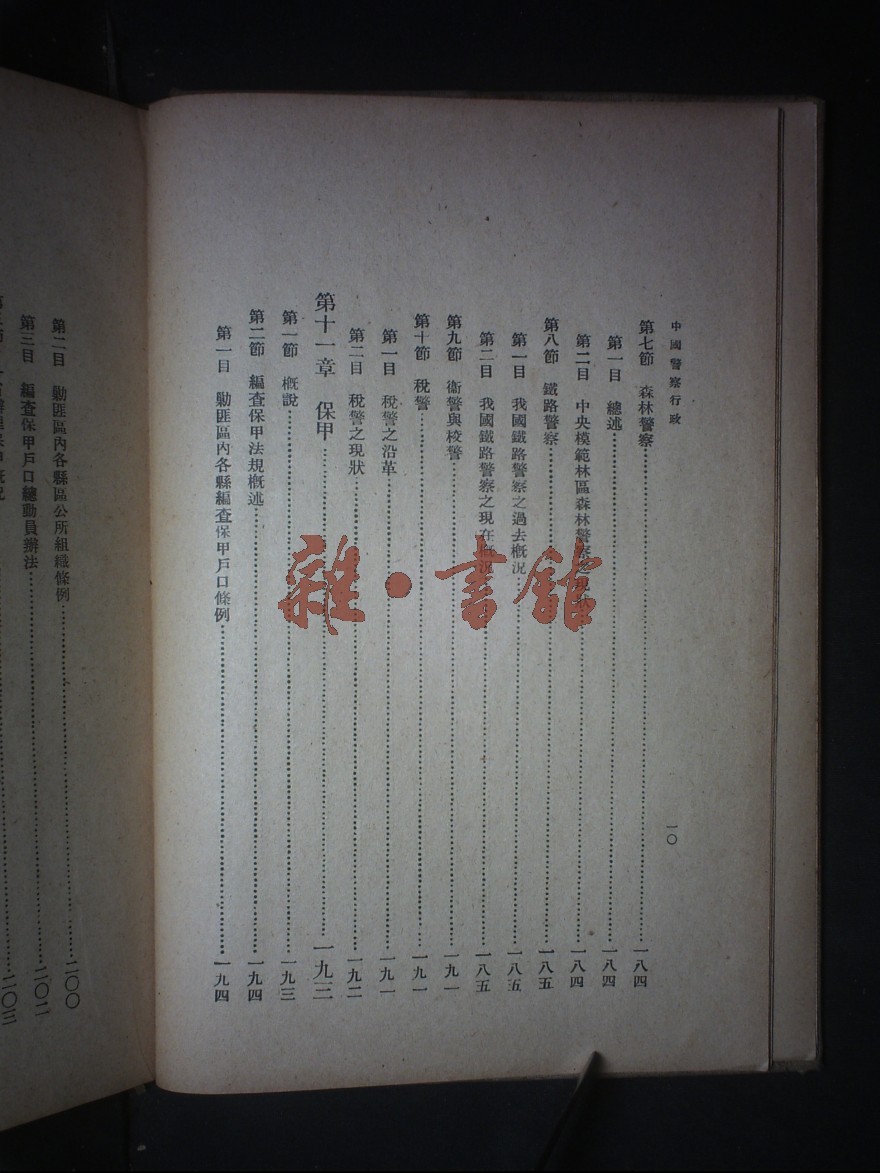 中國警察行政
一〇
第七節 森林警察……一八四
第一目 總述……一八四
第二目 中央模範林區森林警察之現狀……一八四
第八節 鐵路警察……一八五
第一目 我國鐵路警察之過去概況……一八五
第二目 我國鐵路警察之現在概況……一八五
第九節 衞警與校警……一九一
第十節 稅警……一九一
第一目 稅警之沿革……一九一
第二目 稅警之現狀……一九二
第十一章 保甲……一九三
第一節 概說……一九三
第二節 編查保甲法規概述……一九四
第一目 勦匪區內各縣編查保甲戶口條例……一九四
第二目 勦匪區內各縣區公所組織條例……二〇〇
第三目 編查保甲戶口總動員辦法……二〇二
二〇三
雜·書館